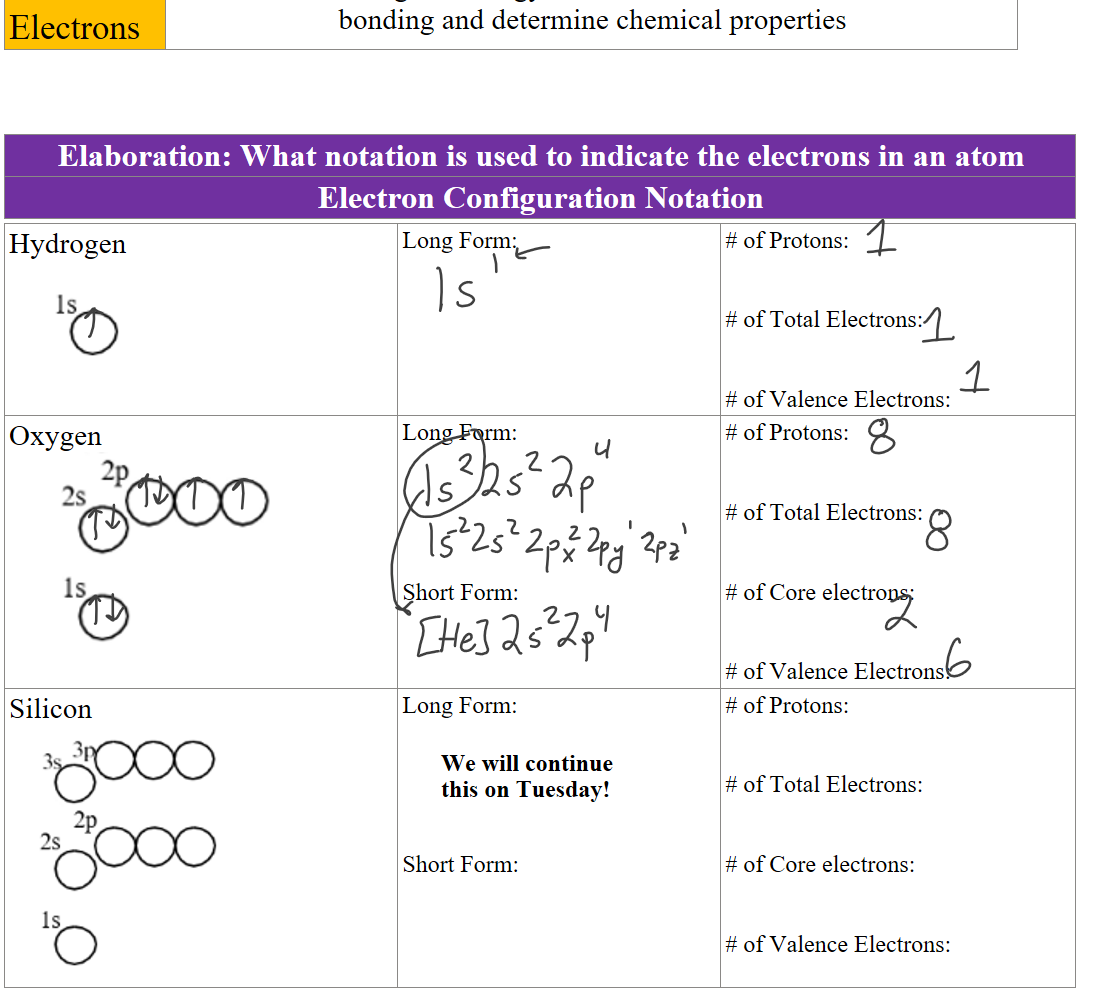 Electrons
bonding and determine chemical properties
Elaboration: What notation is used to indicate the electrons in an atom
Electron Configuration Notation
Hydrogen
1s
Long Form:
1s¹
# of Protons: 1
# of Total Electrons: 1
# of Valence Electrons: 1
Oxygen
2p
2s
1s
Long Form:
1s²2s²2p⁴
1s²2s²2px²2py¹2pz¹
Short Form:
[He]2s²2p⁴
# of Protons: 8
# of Total Electrons: 8
# of Core electrons: 2
# of Valence Electrons: 6
Silicon
3p
3s
2p
2s
1s
Long Form:
We will continue
this on Tuesday!
Short Form:
# of Protons:
# of Total Electrons:
# of Core electrons:
# of Valence Electrons: